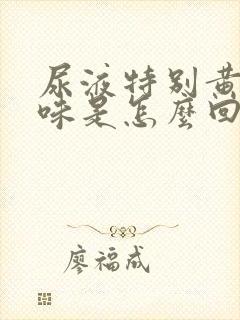 尿液特别黄
味是怎麽回
廖福成